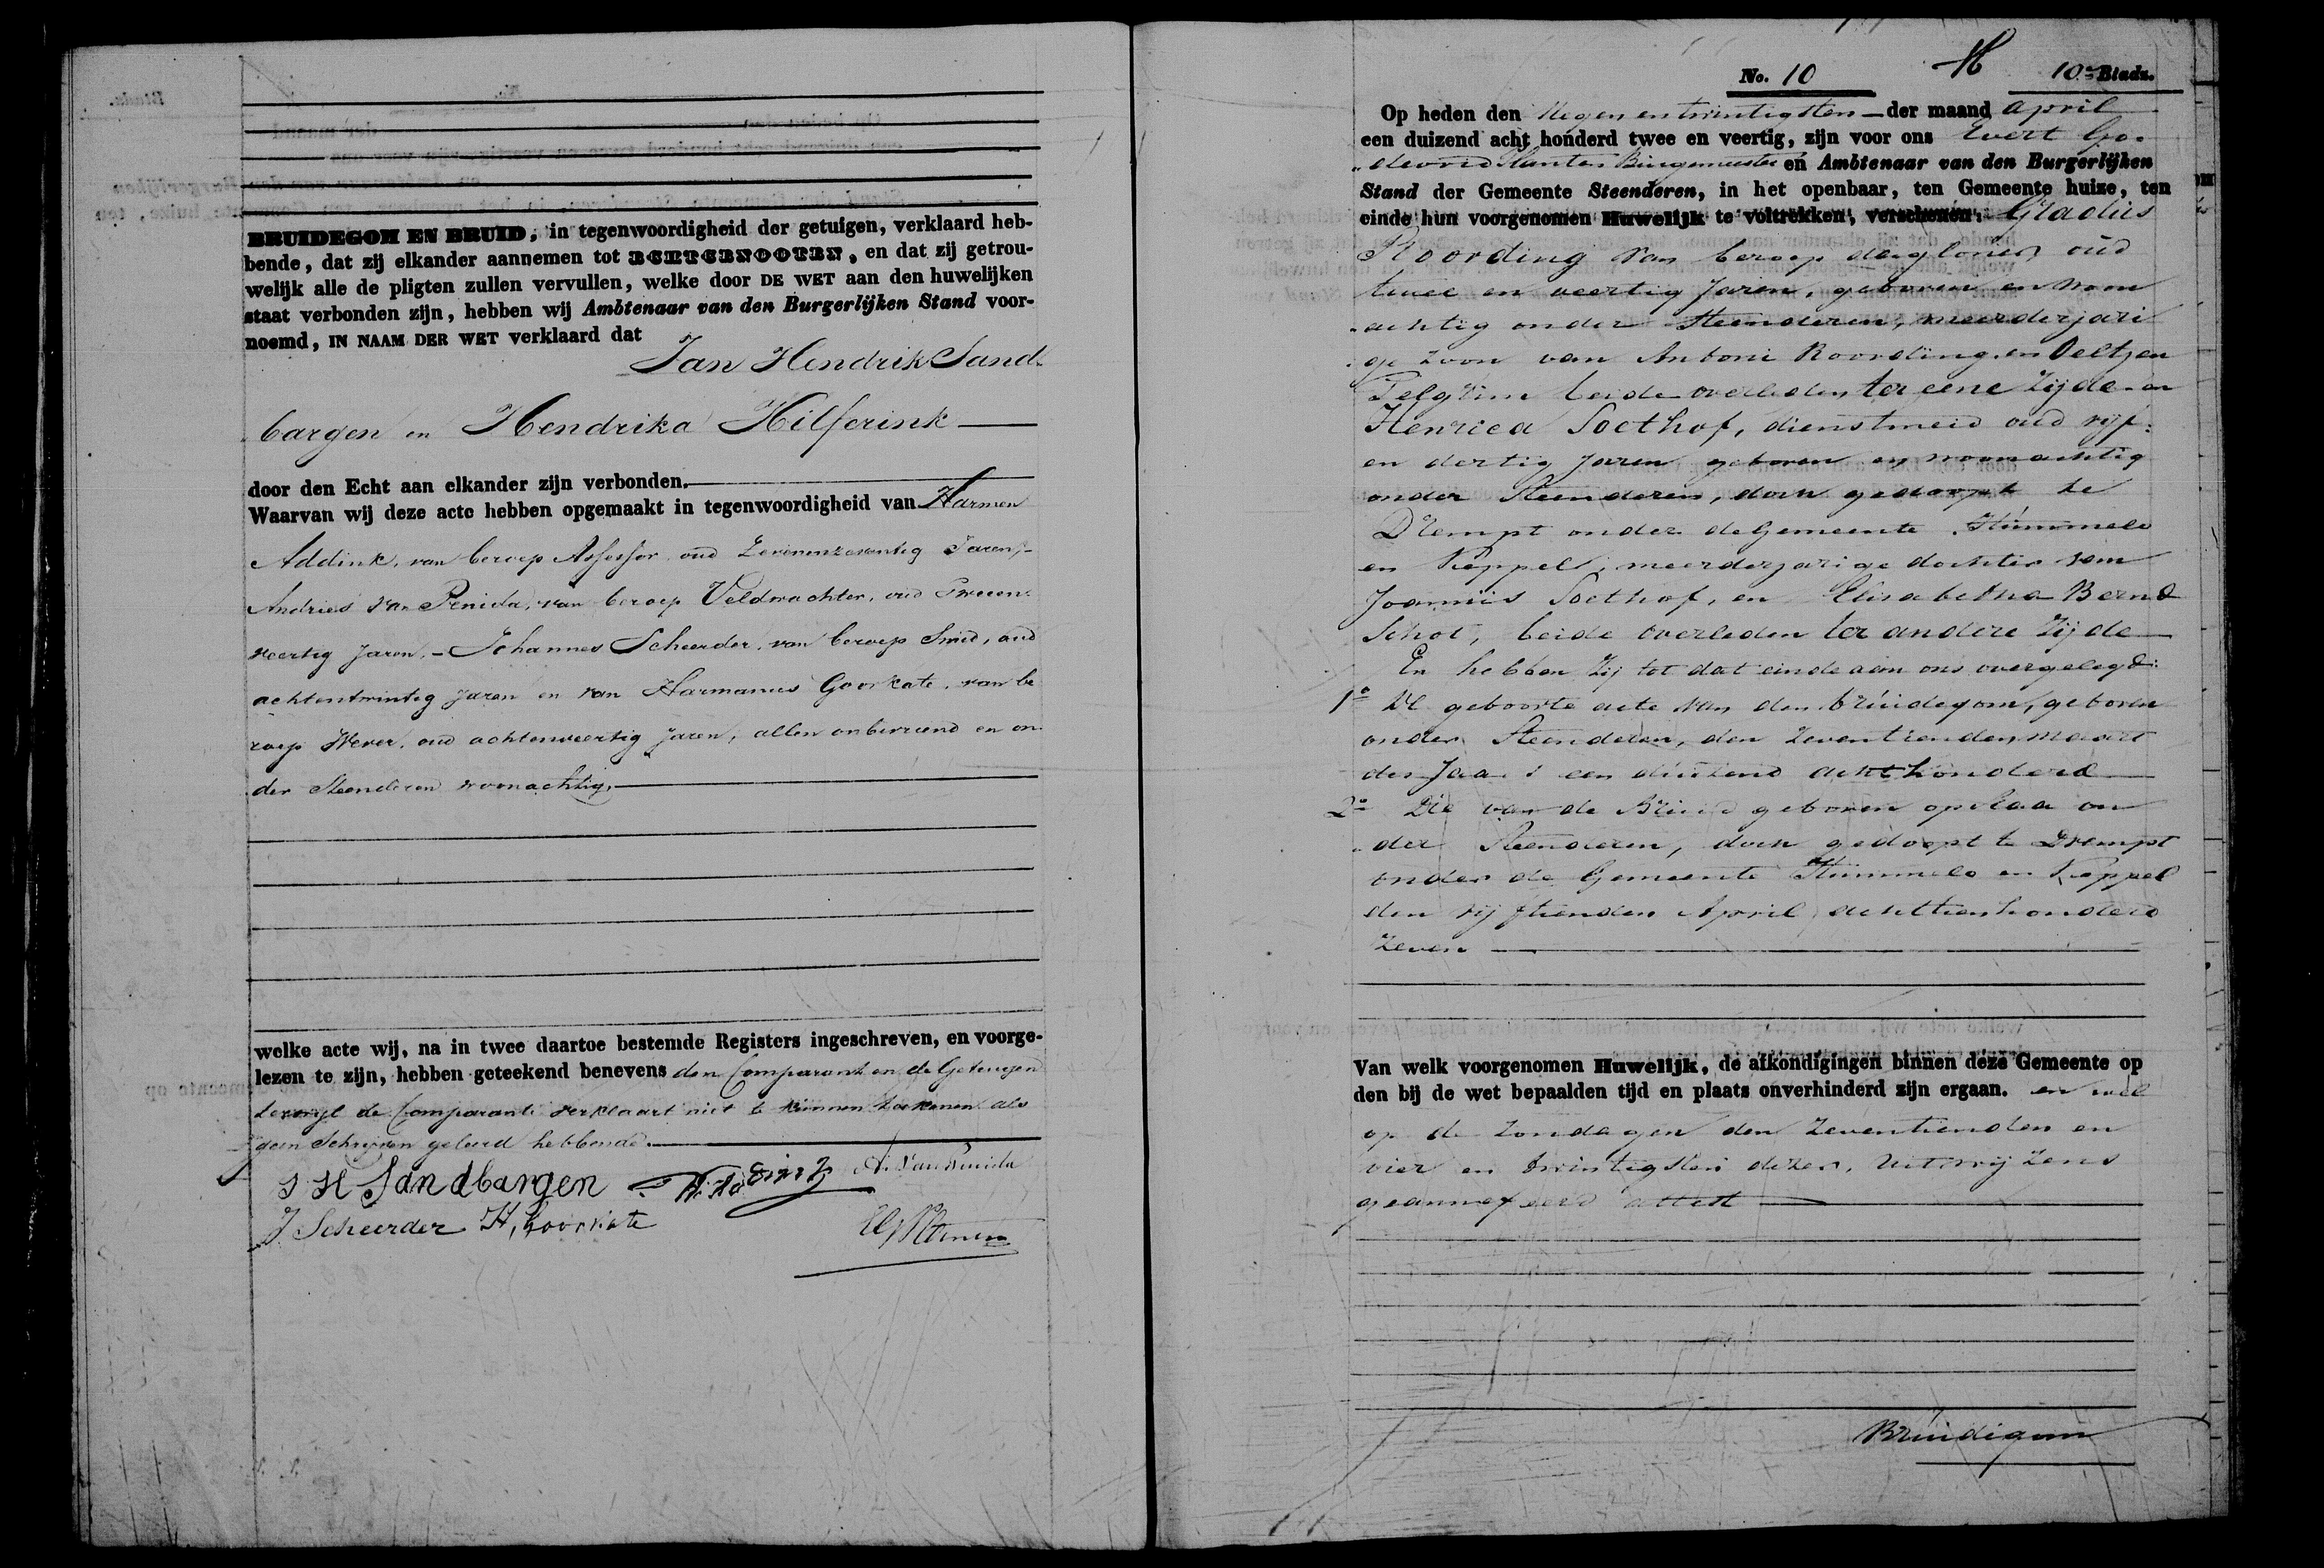 BRUIDEGOM EN BRUID, in tegenwoordigheid der getuigen, verklaard heb-
bende, dat zij elkander aannemen tot ECHTGENOOTEN, en dat zij getrou-
welijk alle de pligten zullen vervullen, welke door DE WET aan den huwelijken
staat verbonden zijn, hebben wij Ambtenaar van den Burgerlijken Stand voor-
noemd, IN NAAM DER WET verklaard dat
Jan Hendrik Sand-
bargen en Hendrika Hilferink
door den Echt aan elkander zijn verbonden.
Waarvan wij deze acte hebben opgemaakt in tegenwoordigheid van Harmen
Addink, van beroep Assessor oud Zevenenzeventig Jaren,
Andries van Penida, van beroep Veldwachter, oud Tweeen
veertig Jaren, - Johannes Scheerder, van beroep Smid, oud
achtentwintig Jaren en van Harmanus Goorkate, van be
roep Wever, oud achtenveertig Jaren, allen onbevriend en on
der Steenderen woonachtig.
welke acte wij, na in twee daartoe bestemde Registers ingeschreven, en voorge-
lezen te zijn, hebben geteekend benevens den Comparant en de Getuigen
terwyl de Comparante verklaart niet te kunnen teekenen als
geen Schryven geleerd hebbende.
J H Sandbargen H. Addink A. van Penida
J. Scheerder H. Goorkate
No. 10 10e Bladz.
Op heden den Negenentwintigsten der maand April
een duizend acht honderd twee en veertig, zijn voor ons Evert Go-
devried Planten Burgemeester en Ambtenaar van den Burgerlijken
Stand der Gemeente Steenderen, in het openbaar, ten Gemeente huize, ten
einde hun voorgenomen Huwelijk te voltrekken, verschenen, Gradus
Roording van beroep dagloner, oud
twee en veertig Jaren, geboren en woon
achtig onder Steenderen, meerderjari
ge zoon van Antoni Roording en Oeltjen
Pelgrim beide overleden ter eene Zijde en
Henrica Soethof, dienstmeid oud vyf
en dertig Jaren geboren en woonachtig
onder Steenderen, doch gedoopt te
Drempt onder de Gemeente Hummelo
en Keppel, meerderjarige dochter van
Joannis Soethof, en Elisabetha Bernd
Schot, beide overleden ter andere Zijde
En hebben Zij tot dat einde aan ons overgelegd:
1o De geboorte acte van den bruidegom, geboren
onder Steenderen, den Zeventienden Maart
des Jaars een duizend achthonderd
2o Die van de Bruid geboren op Baa on
der Steenderen, doch gedoopt te Drempt
onder de Gemeente Hummelo en Keppel
den vyftienden April achttienhonderd
Zeven
Van welk voorgenomen Huwelijk, de afkondigingen binnen deze Gemeente op
den bij de wet bepaalden tijd en plaats onverhinderd zijn ergaan. en wel
op de Zondagen den Zeventienden en
vier en twintigsten dezer, uitwijzens
geannexeerd attest
Bruidigom